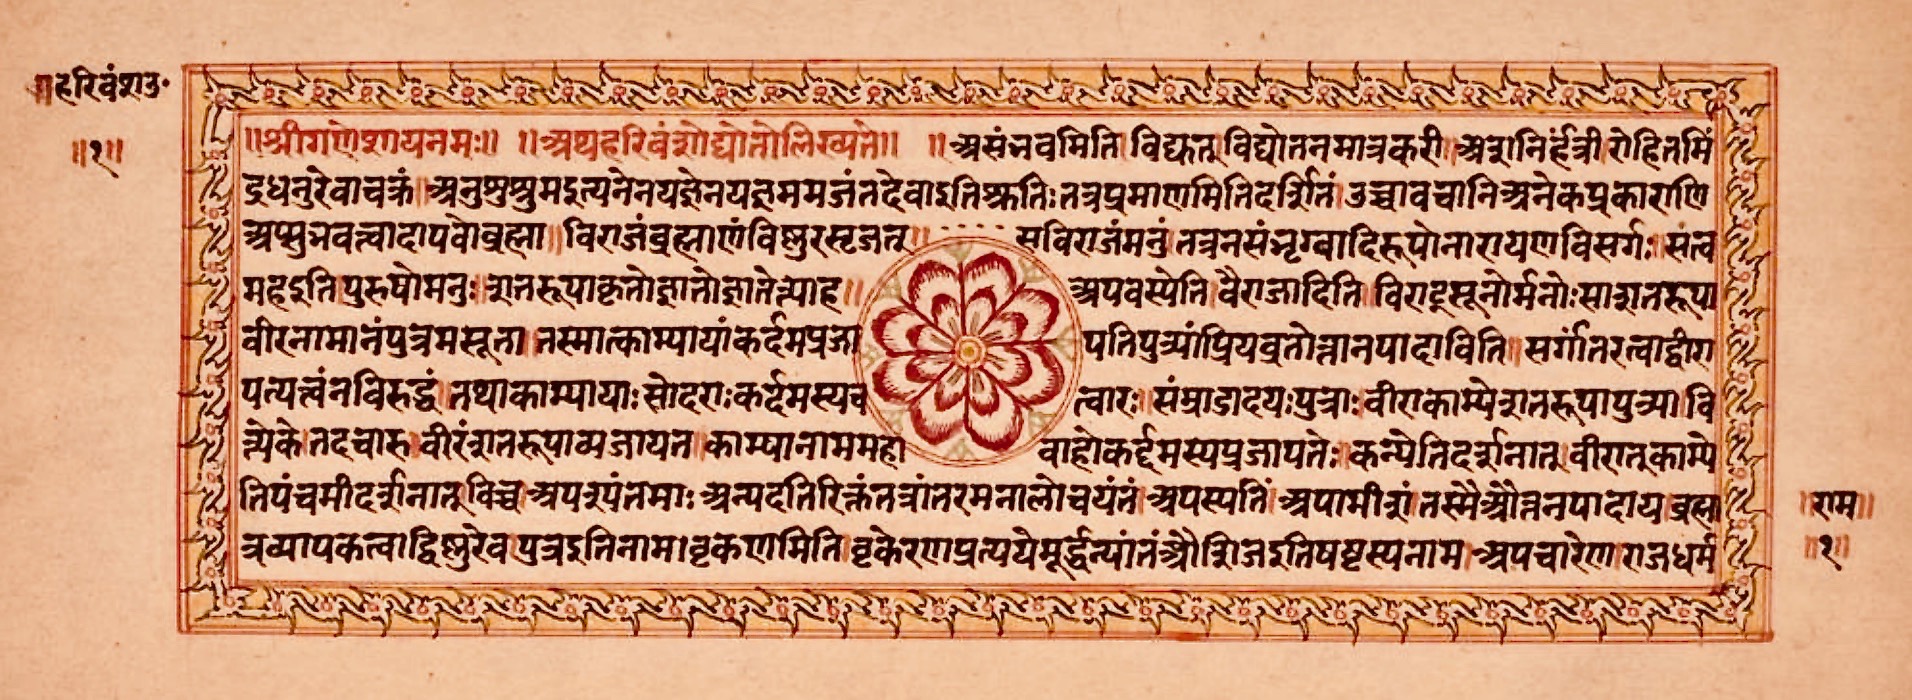 ॥हरिवंशउ॰
॥१॥
॥श्रीगणेशायनमः॥ ॥अथहरिवंशोद्योतोलिख्यते॥ ॥असंभवमिति विद्युत्तु विद्योतनमात्रकरी अशनिर्हंत्री रोहितमिं
द्रधनुरेवावक्रं यज्ञेनयज्ञमयजंतदेवाइतिश्रुतिःतत्रप्रमाणमितिदर्शितं उच्चावचानिअनेकप्रकाराणि
अप्सुभवत्वादापवोब्रह्मा विराजंब्रह्माणंविष्णुरसृजत्॥ सविराजंमनुं नारायणविसर्गः
महइति पुरुषोमनुः शतरूपा अपवस्येति वैराजादिति विराट्सूनोर्मनोःसाशतरूपा
वीरनामानंपुत्रमसूता तस्मात्काम्यायांकर्दमप्रजा पतिपुत्र्यांप्रियव्रतोत्तानपादाविति सर्गांतरत्वाद्वीरा
पत्यत्वंनविरुद्धं तथाकाम्यायाःसोदराःकर्दमस्यच त्वारः संम्राडादयःपुत्राः वीराकाम्येशतरूपापुत्र्या वि
त्येके तदचारु वीरंशतरूपाव्यजायत काम्यानाममहा वाहोकर्द्दमस्यप्रजापतेः कन्येतिदर्शनात्तु वीरात्तुकाम्ये
तिपंचमीदर्शनात्तु अन्यदतिरिक्तंतत्रांतरमनालोचयंतं अपस्पतिं अपामीशं तस्मैऔत्तनपादाय ब्रह्मा
त्रव्यापकत्वाद्विष्णुरेव पुत्रइतिनाम।वृकेणमिति औशिजइतिषष्टस्यनाम अपचारेण राजधर्म
॥राम॥
॥१॥